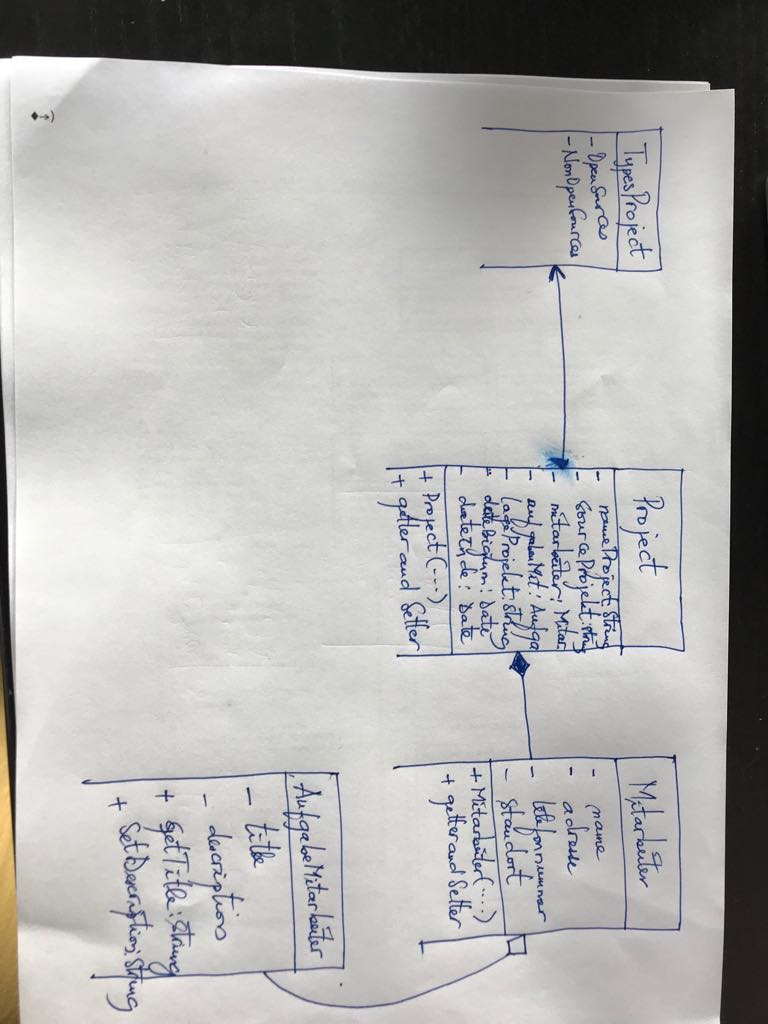 TypesProject
- OpenSources
- NonOpenSources
Project
- nameProject: String
- SourceProjekt: String
- mitarbeiter: Mitar
- aufgabenMit: Aufga
- lageProjekt: String
- dateBiginn: Date
- dateEnde: Date
+ Project (---)
+ getter and Setter
Mitarbeiter
- name
- adresse
- telefonnummer
- Standort
+ Mitarbeiter(---)
+ getter and Setter
AufgabeMitarbeiter
- title
- description
+ getTitle: String
+ SetDescription: String